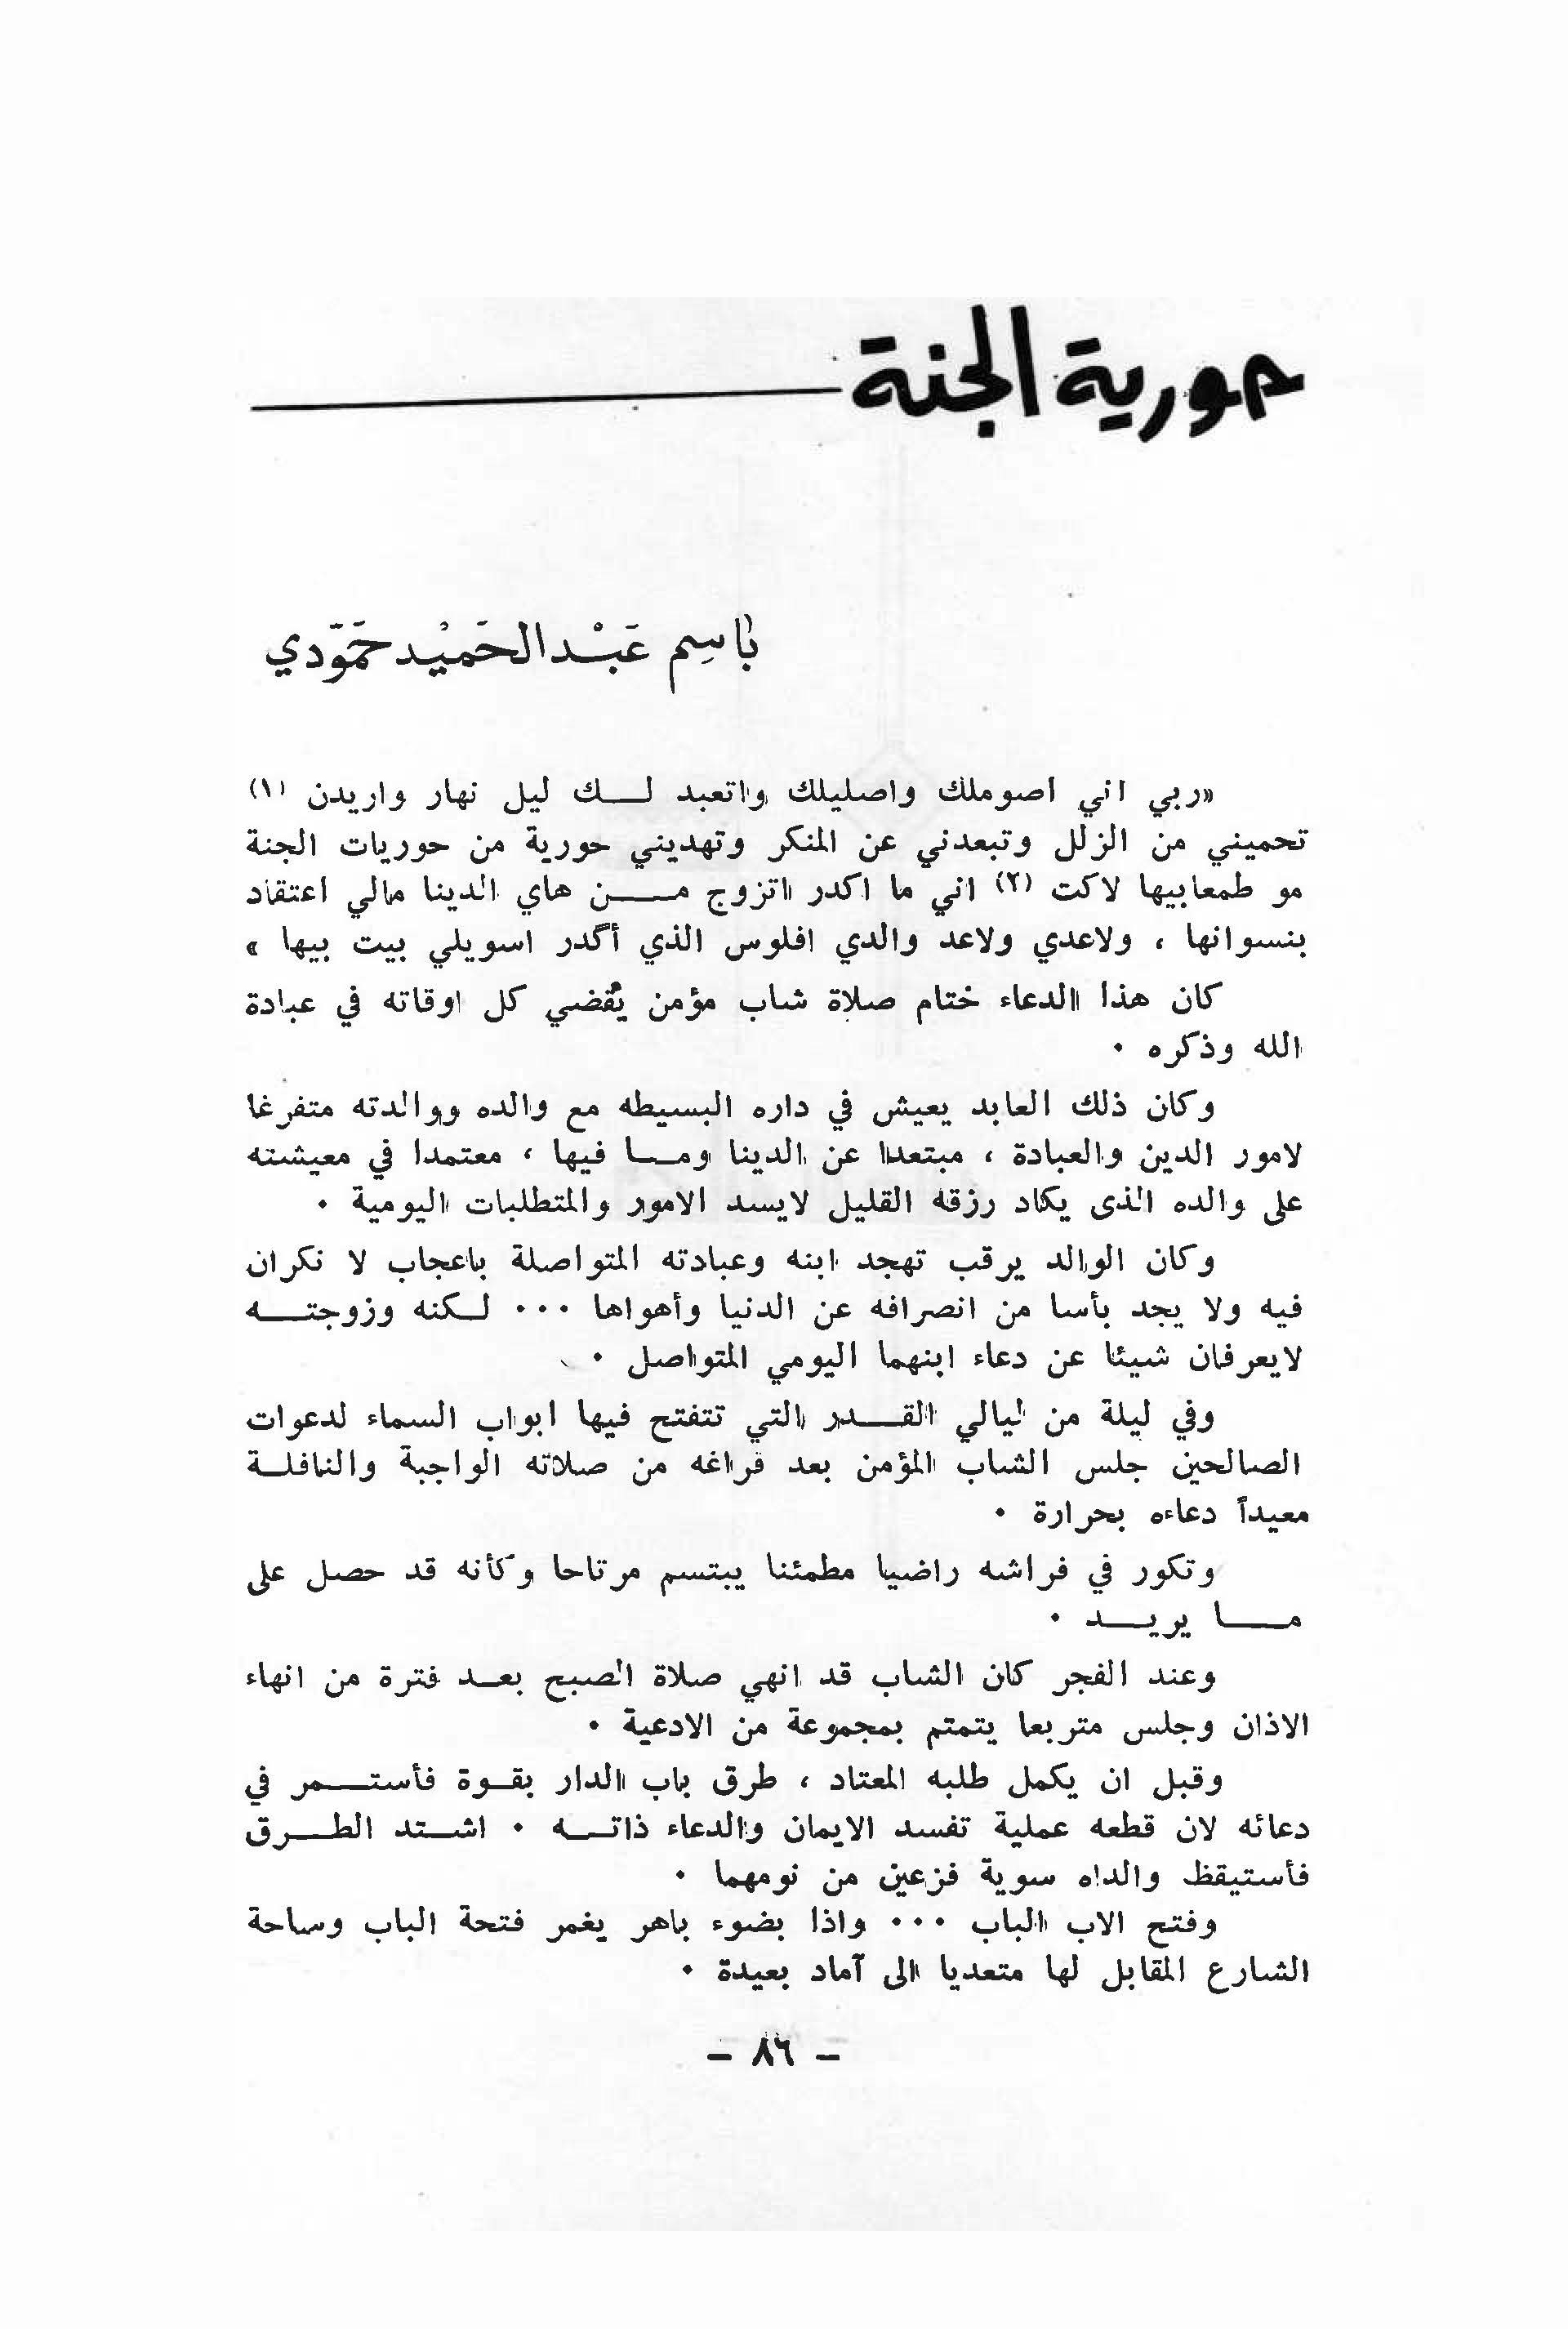 حورية الجنة
باسِم عَبْد الحَميْد حَمّوَدي
«ربي اني اصوملك واصليلك واتعبد لك ليل نهار واريدن (١)
تحميني من الزلل وتبعدني عن المنكر وتهديني حورية من حوريات الجنة
مو طمعابيها لاكت (٢) اني ما اكدر اتزوج من هاي الدينا مالي اعتقاد
بنسوانها ، ولاعدي ولاعد والدي افلوس الذي أگدر اسويلي بيت بيها »
كان هذا الدعاء ختام صلاة شاب مؤمن يُقضي كل اوقاته في عبادة
الله وذكره ٠
وكان ذلك العابد يعيش في داره البسيطه مع والده ووالدته متفرغا
لامور الدين والعبادة ، مبتعدا عن الدينا وما فيها ، معتمدا في معيشته
على والده الذى يكاد رزقه القليل لايسد الامور والمتطلبات اليومية ٠
وكان الوالد يرقب تهجد ابنه وعبادته المتواصلة باعجاب لا نكران
فيه ولا يجد بأسا من انصرافه عن الدنيا وأهواها ٠٠٠ لكنه وزوجته
لايعرفان شيئا عن دعاء ابنهما اليومي المتواصل ٠
وفي ليلة من ليالي القدر التي تتفتح فيها ابواب السماء لدعوات
الصالحين جلس الشاب المؤمن بعد فراغه من صلاته الواجبة والنافلة
معيداً دعاءه بحرارة ٠
وتكور في فراشه راضيا مطمئنا يبتسم مرتاحا وكأنه قد حصل على
ما يريد ٠
وعند الفجر كان الشاب قد انهي صلاة الصبح بعد فترة من انهاء
الاذان وجلس متربعا يتمتم بمجموعة من الادعية ٠
وقبل ان يكمل طلبه المعتاد ، طرق باب الدار بقوة فأستمر في
دعائه لان قطعه عملية تفسد الايمان والدعاء ذاته ٠ اشتد الطرق
فأستيقظ والداه سوية فزعين من نومهما ٠
وفتح الاب الباب ٠٠٠ واذا بضوء باهر يغمر فتحة الباب وساحة
الشارع المقابل لها متعديا الى آماد بعيدة ٠
- ٨٦ -